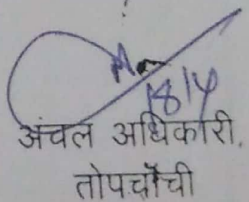 18/4
अंचल अधिकारी,
तोपचाँची